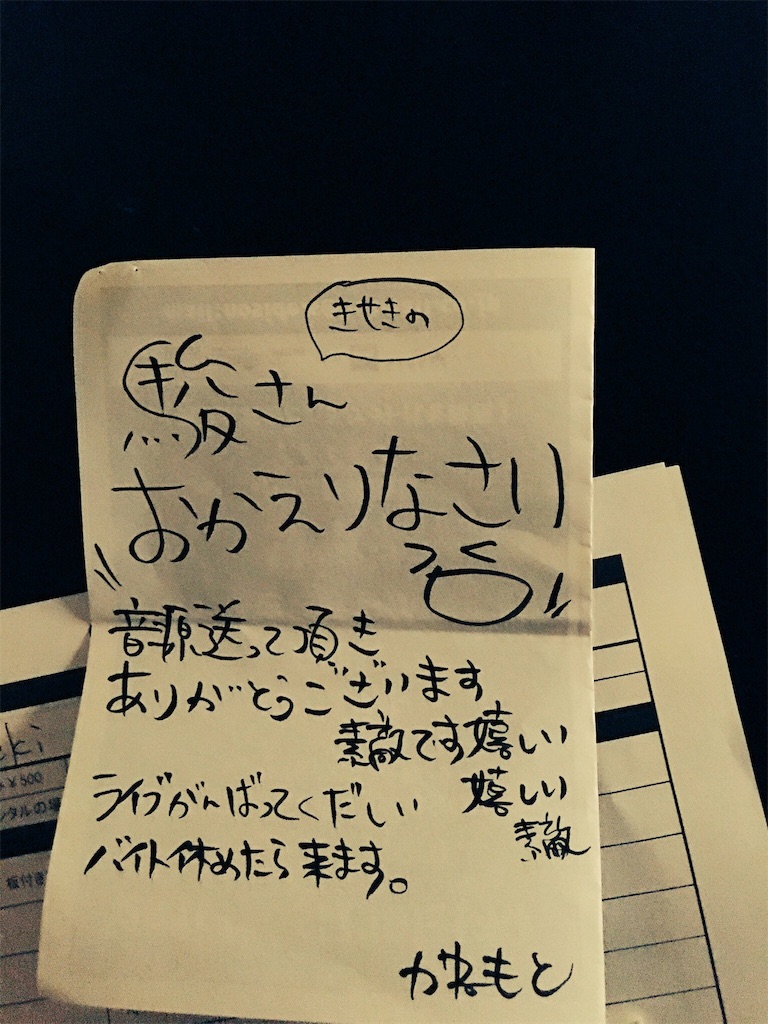 きせきの
駿さん
おかえりなさい
音源送って頂き
ありがとうございます
素敵です嬉しい
嬉しい
素敵
ライブがんばってくだしい
バイト休めたら来ます。
かねもと
ki
¥500
ンタルの場
板付き